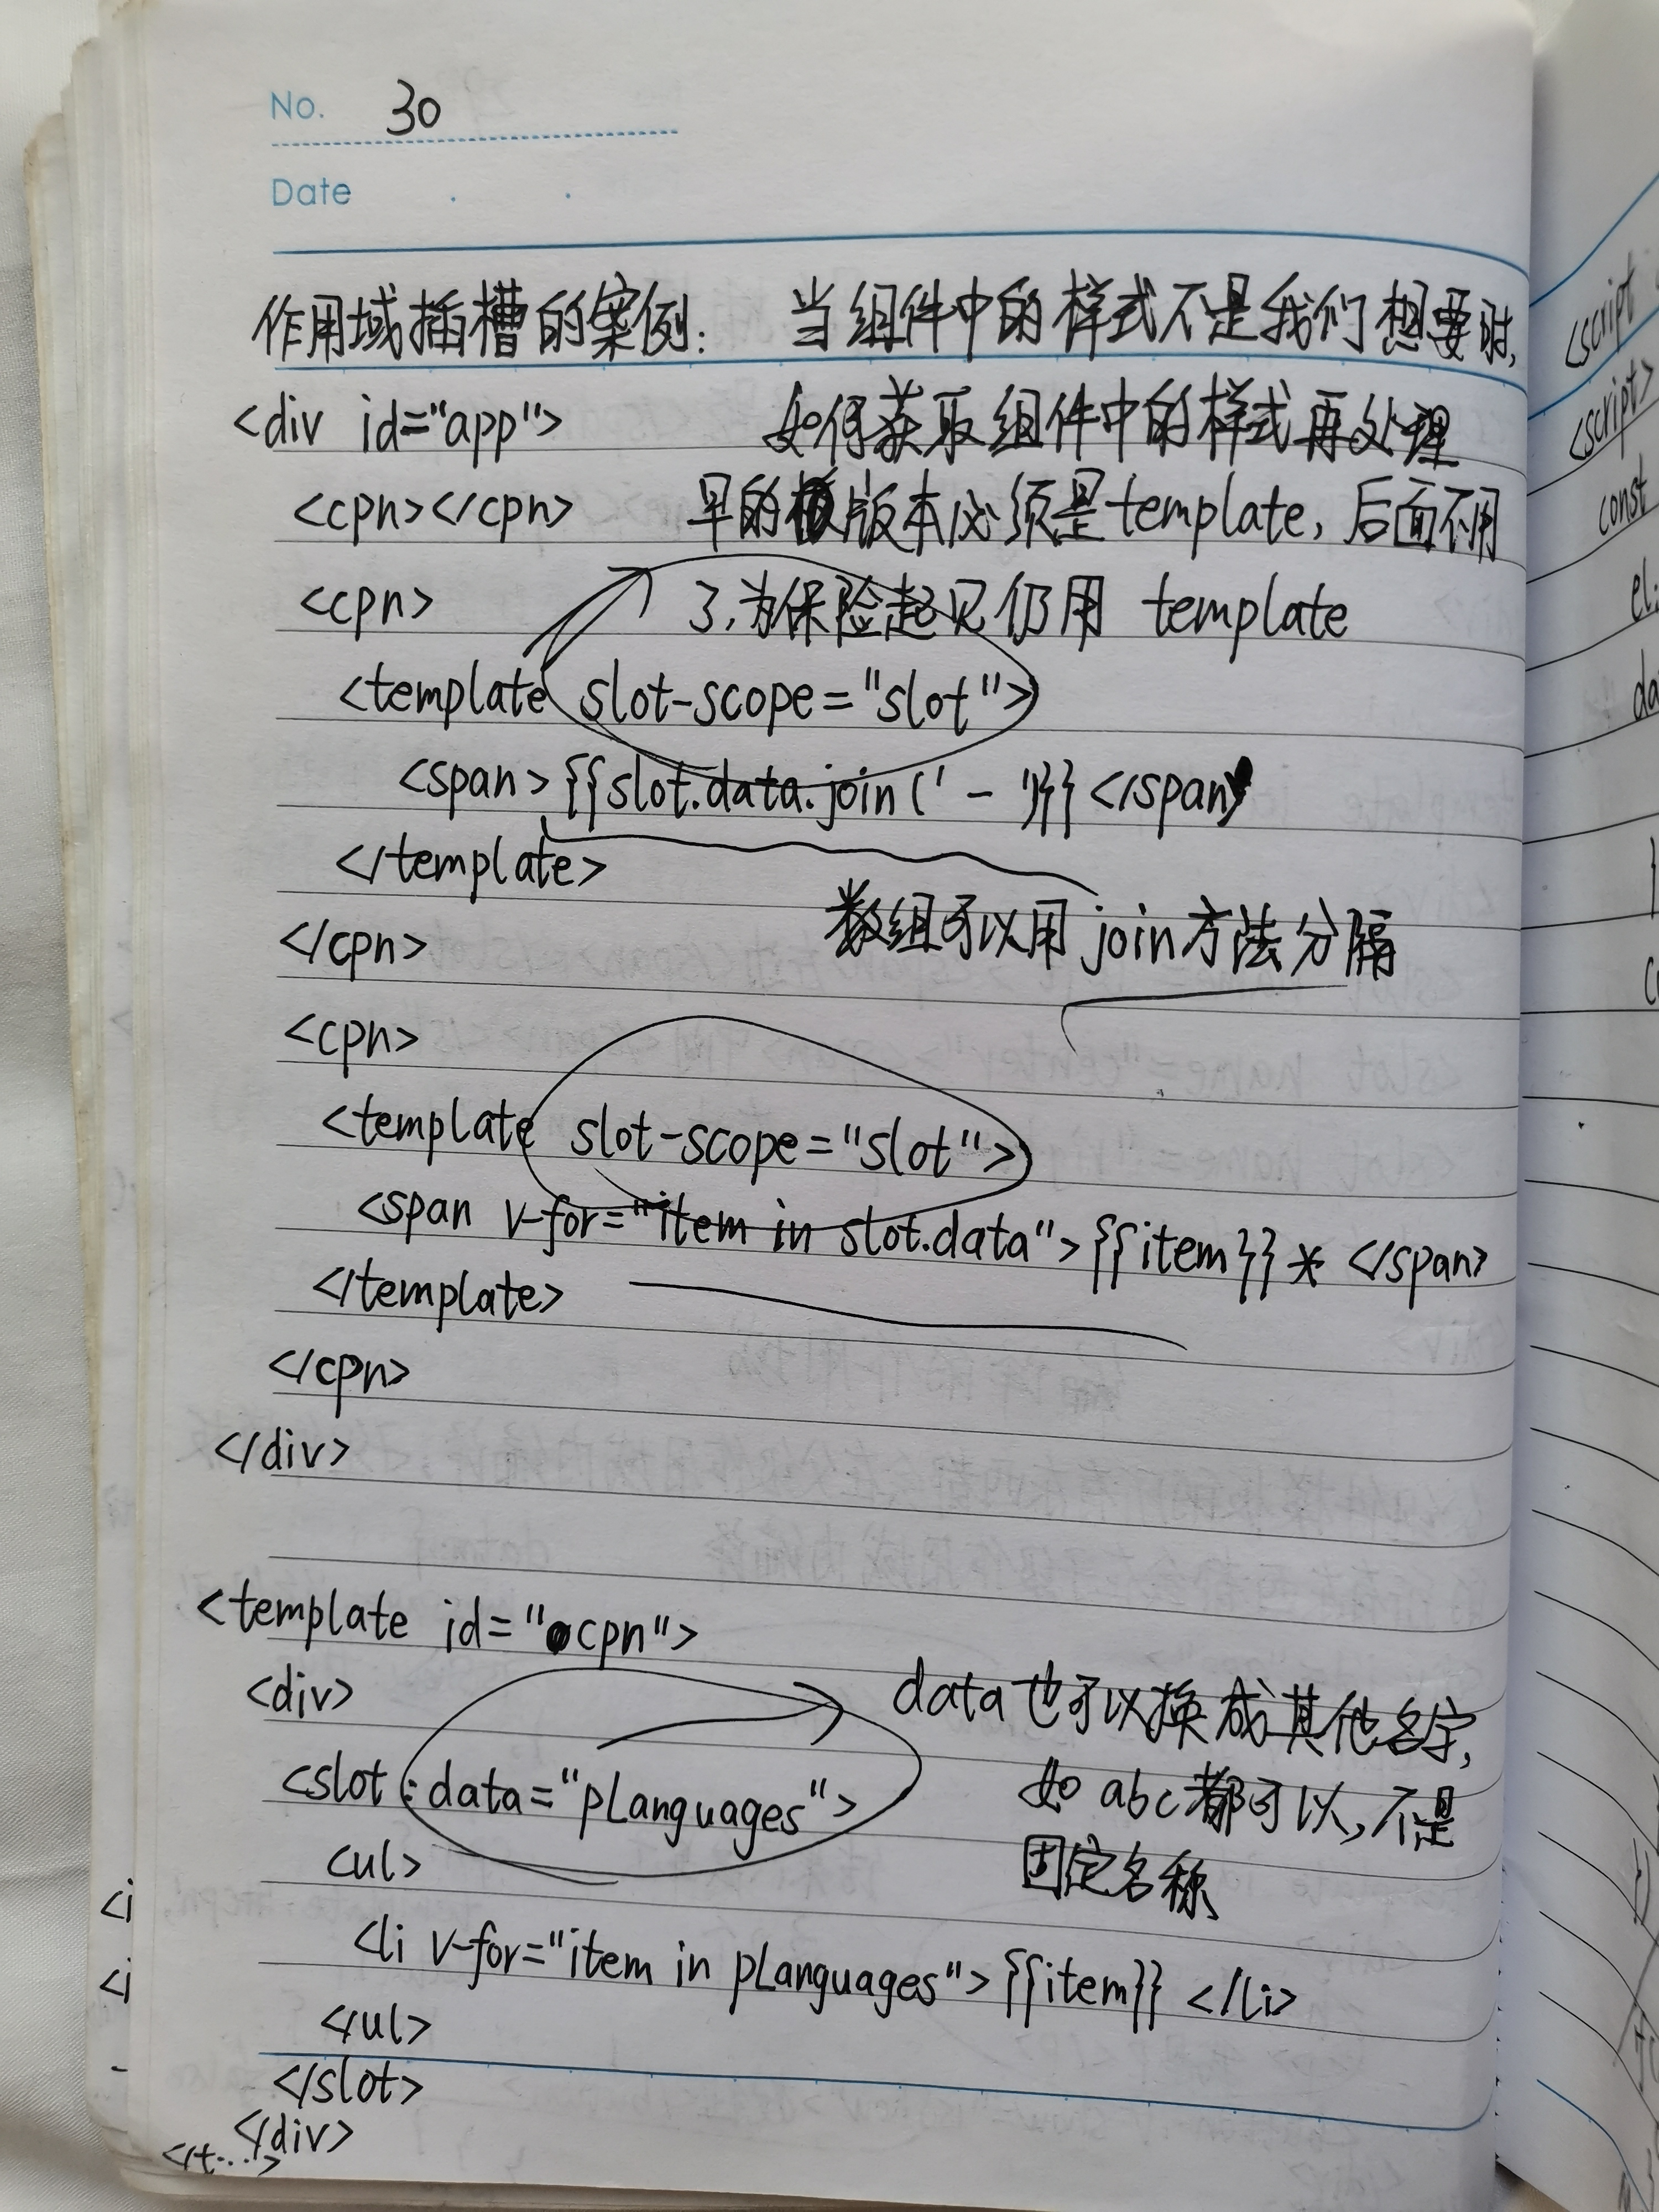 No. 30
Date
作用域插槽的案例: 当组件中的样式不是我们想要时,
<div id="app"> 如何获取组件中的样式再处理
<cpn></cpn> 早的版本必须是template, 后面不用
<cpn> 了,为保险起见仍用 template
<template slot-scope="slot">
<span>{{slot.data.join(' - ')}}</span>
</template>
数组可以用join方法分隔
</cpn>
<cpn>
<template slot-scope="slot">
<span v-for="item in slot.data">{{item}} * </span>
</template>
</cpn>
</div>
<template id="cpn">
<div> data也可以换成其他名字,
<slot :data="pLanguages"> 如abc都可以,不是
<ul> 固定名称
<li v-for="item in pLanguages">{{item}} </li>
</ul>
</slot>
</div>
</t...>
<script
<script>
const
el:
da
<i
<i